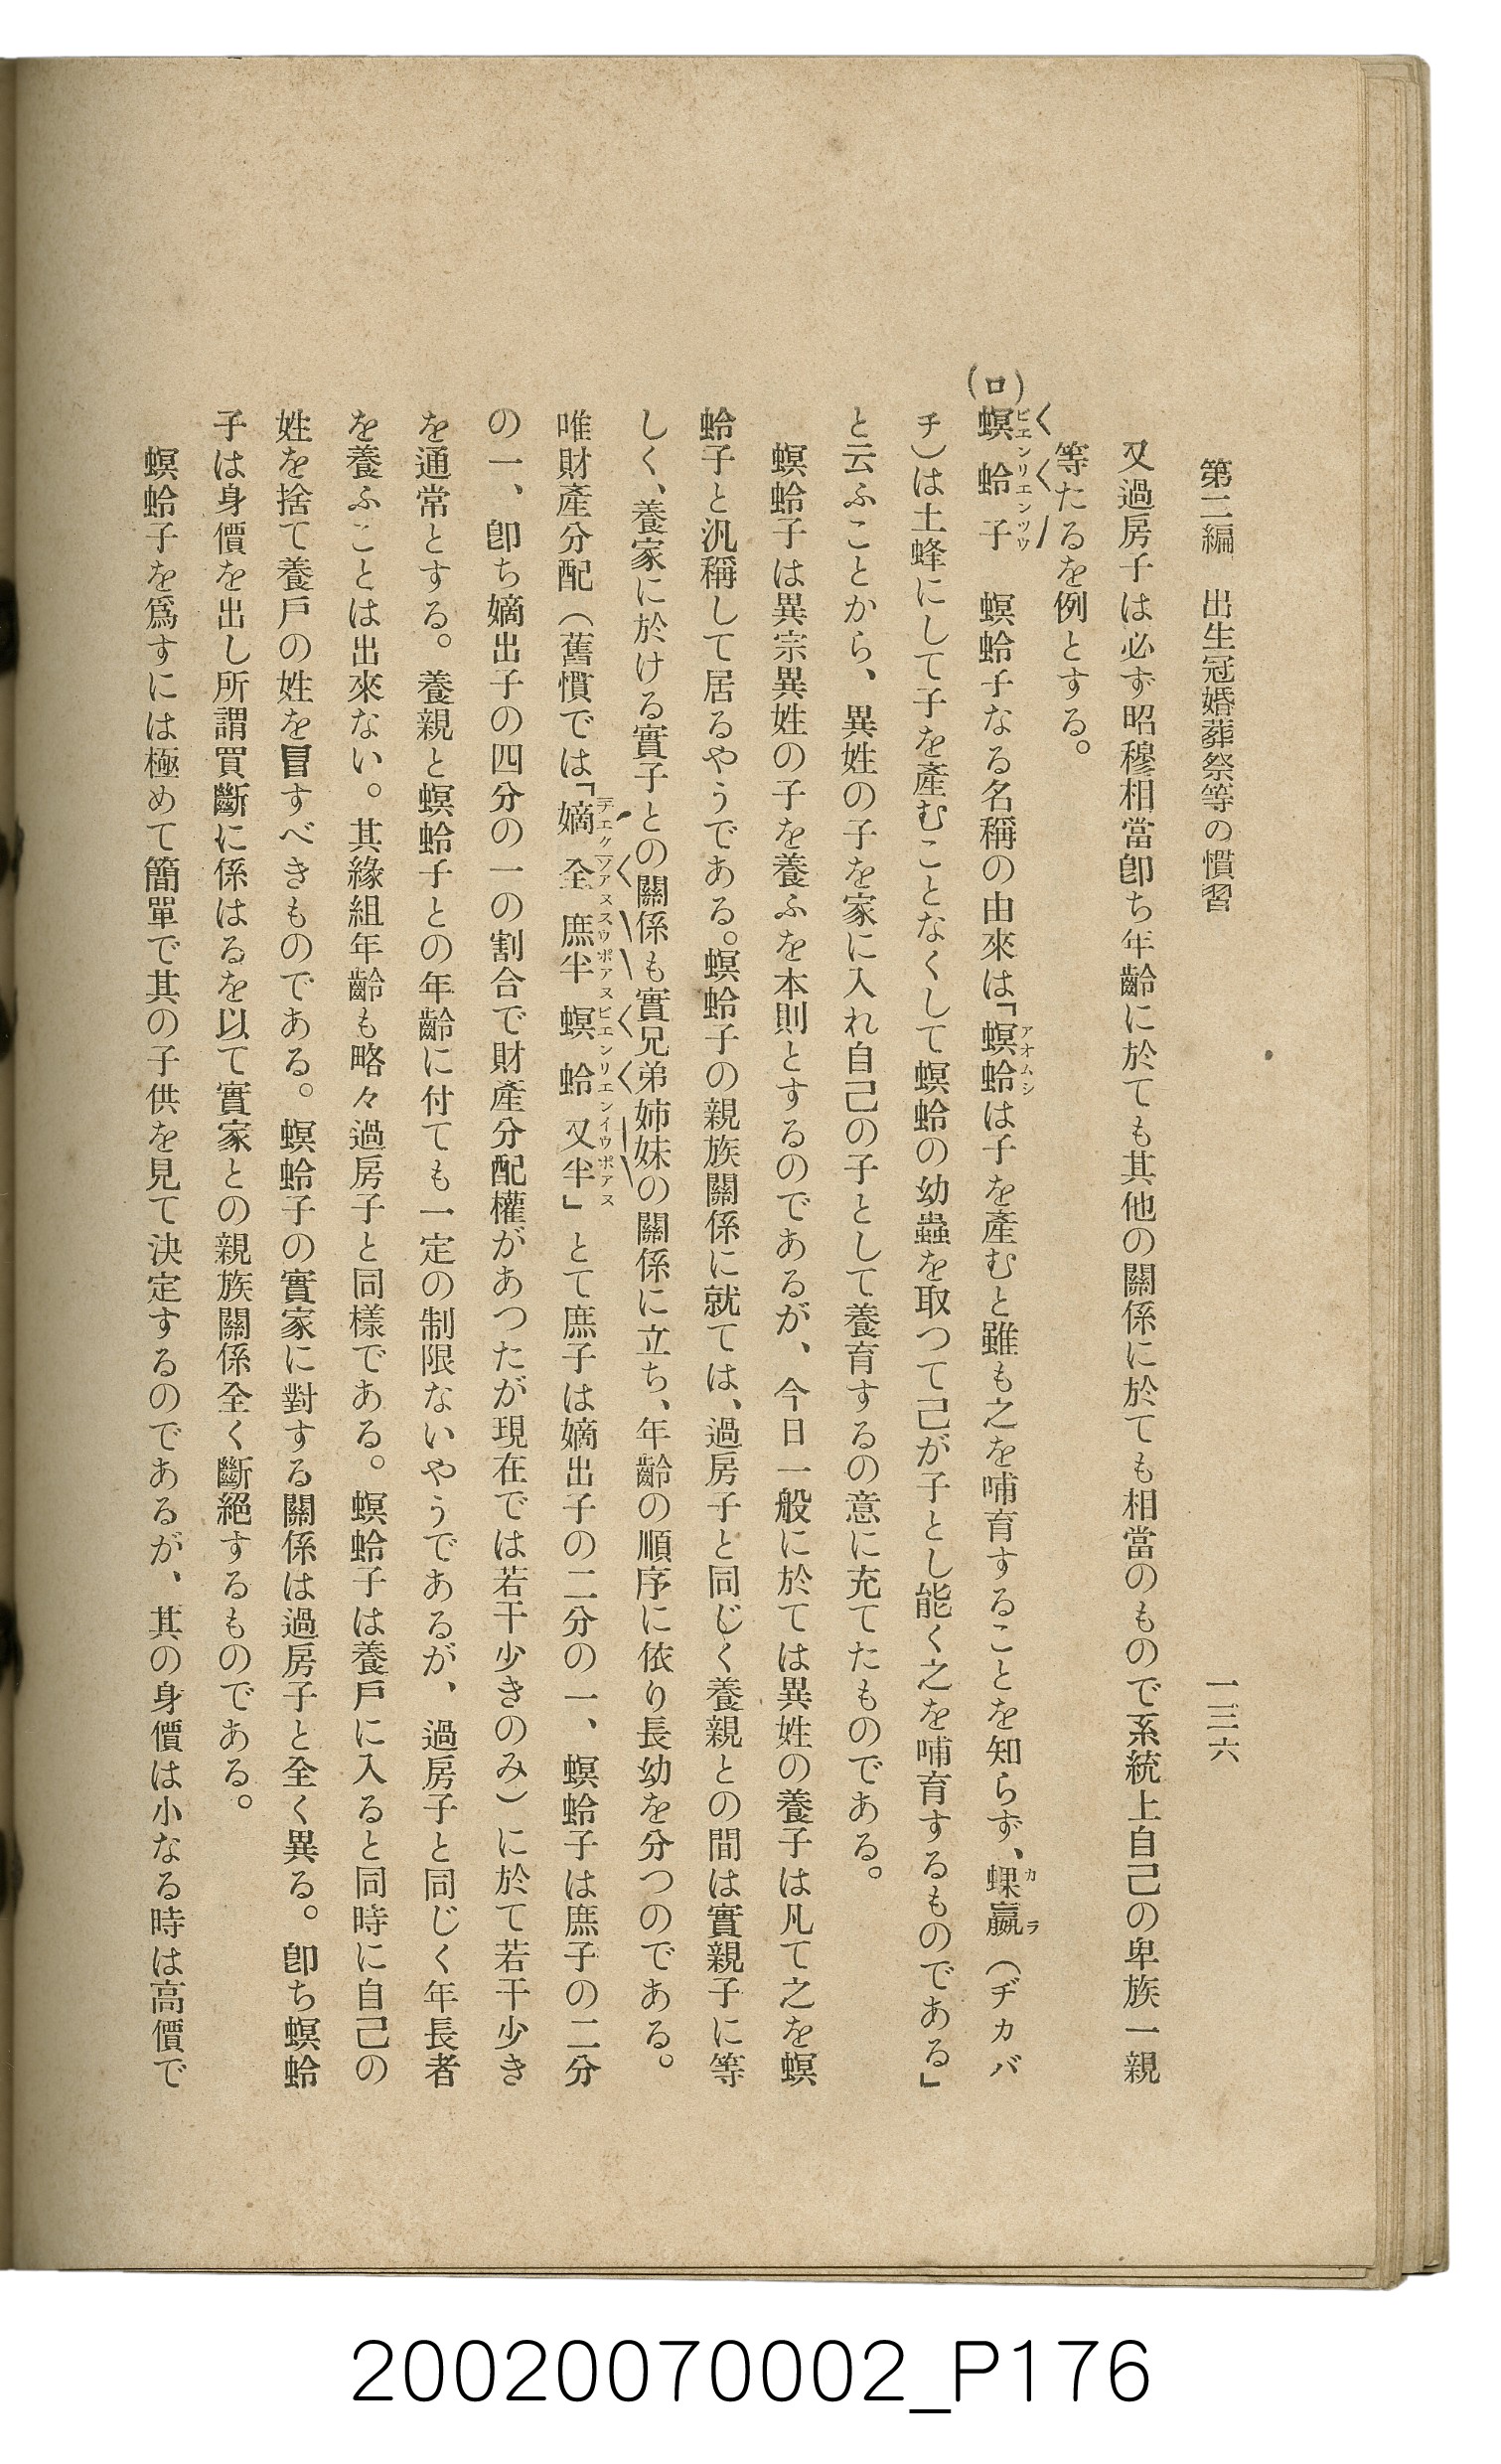 第二編　出生冠婚葬祭等の慣習
一三六
又過房子は必ず昭穆相當卽ち年齡に於ても其他の關係に於ても相當のもので系統上自己の卑族一親
等たるを例とする。
(ロ)螟蛉子　螟蛉子なる名稱の由來は「螟蛉は子を產むと雖も之を哺育することを知らず、蜾蠃（ヂカバ
チ）は土蜂にして子を產むことなくして螟蛉の幼蟲を取つて己が子とし能く之を哺育するものである」
と云ふことから、異姓の子を家に入れ自己の子として養育するの意に充てたものである。
螟蛉子は異宗異姓の子を養ふを本則とするのであるが、今日一般に於ては異姓の養子は凡て之を螟
蛉子と汎稱して居るやうである。螟蛉子の親族關係に就ては、過房子と同じく養親との間は實親子に等
しく、養家に於ける實子との關係も實兄弟姉妹の關係に立ち、年齡の順序に依り長幼を分つのである。
唯財產分配（舊慣では「嫡全庶半螟蛉又半」とて庶子は嫡出子の二分の一、螟蛉子は庶子の二分
の一、卽ち嫡出子の四分の一の割合で財產分配權があつたが現在では若干少きのみ）に於て若干少き
を通常とする。養親と螟蛉子との年齡に付ても一定の制限ないやうであるが、過房子と同じく年長者
を養ふことは出來ない。其緣組年齡も略々過房子と同樣である。螟蛉子は養戶に入ると同時に自己の
姓を捨て養戶の姓を冒すべきものである。螟蛉子の實家に對する關係は過房子と全く異る。卽ち螟蛉
子は身價を出し所謂買斷に係はるを以て實家との親族關係全く斷絕するものである。
螟蛉子を爲すには極めて簡單で其の子供を見て決定するのであるが、其の身價は小なる時は高價で
20020070002_P176